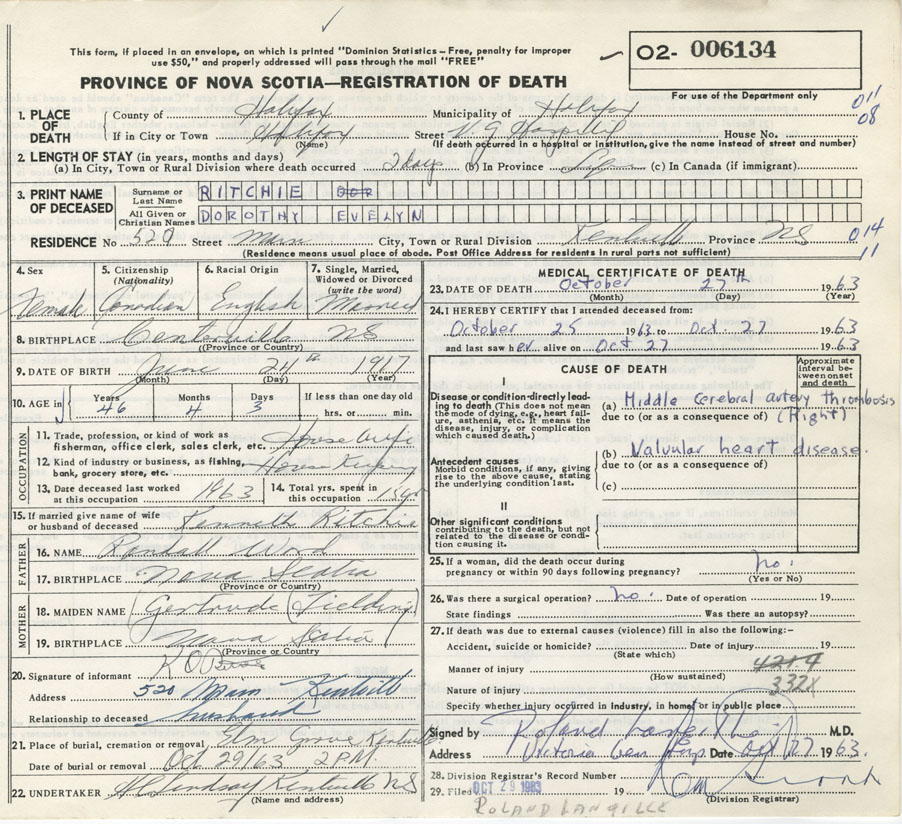 This form, if placed in an envelope, on which is printed "Dominion Statistics – Free, penalty for improper
use $50," and properly addressed will pass through the mail "FREE"
PROVINCE OF NOVA SCOTIA—REGISTRATION OF DEATH
02- 006134
For use of the Department only
011
08
1. PLACE OF DEATH
County of Halifax Municipality of Halifax
If in City or Town Halifax Street V.G Hospital House No.
(Name) (If death occurred in a hospital or institution, give the name instead of street and number)
2. LENGTH OF STAY (in years, months and days)
(a) In City, Town or Rural Division where death occurred 2 days (b) In Province Life (c) In Canada (if immigrant)
3. PRINT NAME OF DECEASED
Surname or Last Name RITCHIE
All Given or Christian Names DOROTHY EVELYN
RESIDENCE No 529 Street Main City, Town or Rural Division Kentville Province NS
014
11
(Residence means usual place of abode. Post Office Address for residents in rural parts not sufficient)
4. Sex
Female
5. Citizenship (Nationality)
Canadian
6. Racial Origin
English
7. Single, Married, Widowed or Divorced (write the word)
Married
8. BIRTHPLACE Centerville NS
(Province or Country)
9. DATE OF BIRTH June 24th 1917
(Month) (Day) (Year)
10. AGE in Years 46 Months 4 Days 3 If less than one day old hrs. or min.
OCCUPATION
11. Trade, profession, or kind of work as fishermen, office clerk, sales clerk, etc. House Wife
12. Kind of industry or business, as fishing, bank, grocery store, etc. House Keeping
13. Date deceased last worked at this occupation 1963
14. Total yrs. spent in this occupation
15. If married give name of wife or husband of deceased Kenneth Ritchie
FATHER
16. NAME Randall Wood
17. BIRTHPLACE Nova Scotia
(Province or Country)
MOTHER
18. MAIDEN NAME Gertrude (Fielding)
19. BIRTHPLACE Nova Scotia
(Province or Country)
20. Signature of informant
Address 520 Main Kentville
Relationship to deceased husband
21. Place of burial, cremation or removal Elm Grove Kentville
Date of burial or removal Oct 29/63 2PM
22. UNDERTAKER H Lindsay Kentville NS
(Name and address)
MEDICAL CERTIFICATE OF DEATH
23. DATE OF DEATH October 27th 1963
(Month) (Day) (Year)
24. I HEREBY CERTIFY that I attended deceased from:
October 25 1963 to Oct. 27 1963
and last saw her alive on Oct 27 1963
CAUSE OF DEATH
Approximate interval between onset and death
Disease or condition directly leading to death (This does not mean the mode of dying, e.g., heart failure, asthenia, etc. It means the disease, injury, or complication which caused death.)
(a) Middle Cerebral artery thrombosis
due to (or as a consequence of) (Right)
Antecedent causes
Morbid conditions, if any, giving rise to the above cause, stating the underlying condition last.
(b) Valvular heart disease.
due to (or as a consequence of)
(c)
II
Other significant conditions
contributing to the death, but not related to the disease or condition causing it.
25. If a woman, did the death occur during pregnancy or within 90 days following pregnancy? no.
(Yes or No)
26. Was there a surgical operation? no. Date of operation 19
State findings Was there an autopsy?
27. If death was due to external causes (violence) fill in also the following:–
Accident, suicide or homicide? Date of injury 19
(State which)
Manner of injury
(How sustained)
332X
Nature of injury
Specify whether injury occurred in Industry, in home, or in public place
Signed by Roland Langille M.D.
Address Victoria Gen Hosp Date Oct 27 1963.
28. Division Registrar's Record Number
29. Filed OCT 29 1963 19
(Division Registrar)
ROLAND LANGILLE